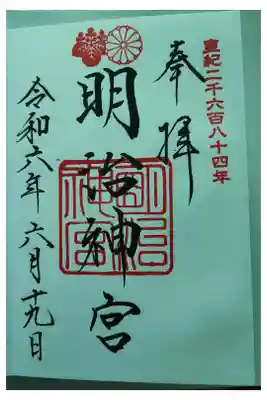 皇紀二千六百八十四年
奉拝
明治神宮
明治神宮
令和六年六月十九日